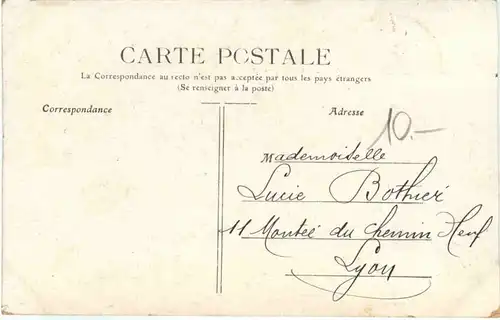 CARTE POSTALE
La Correspondance au recto n'est pas acceptée par tous les pays étrangers
(Se renseigner à la poste)
Correspondance
Adresse
10.-
Mademoiselle
Lucie Bothier
11 Montée du Chemin Neuf
Lyon